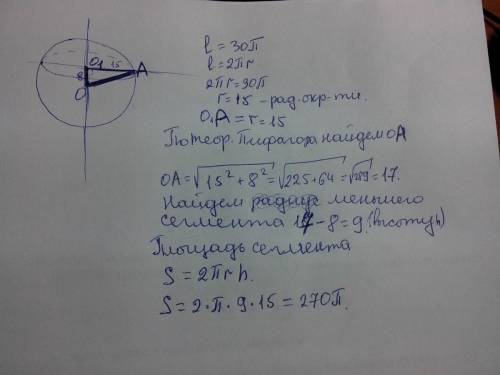 O₁ 15 A
8
O
l = 30π
l = 2πr
2πr = 30π
r = 15 - рад. окр-ти.
O₁A = r = 15
По теор. Пифагора найдем OA
OA = √15² + 8² = √225 + 64 = √289 = 17.
Найдем радиус меньшего
сегмента 17 - 8 = 9 (высоту h)
Площадь сегмента
S = 2πrh.
S = 2·π·9·15 = 270π.